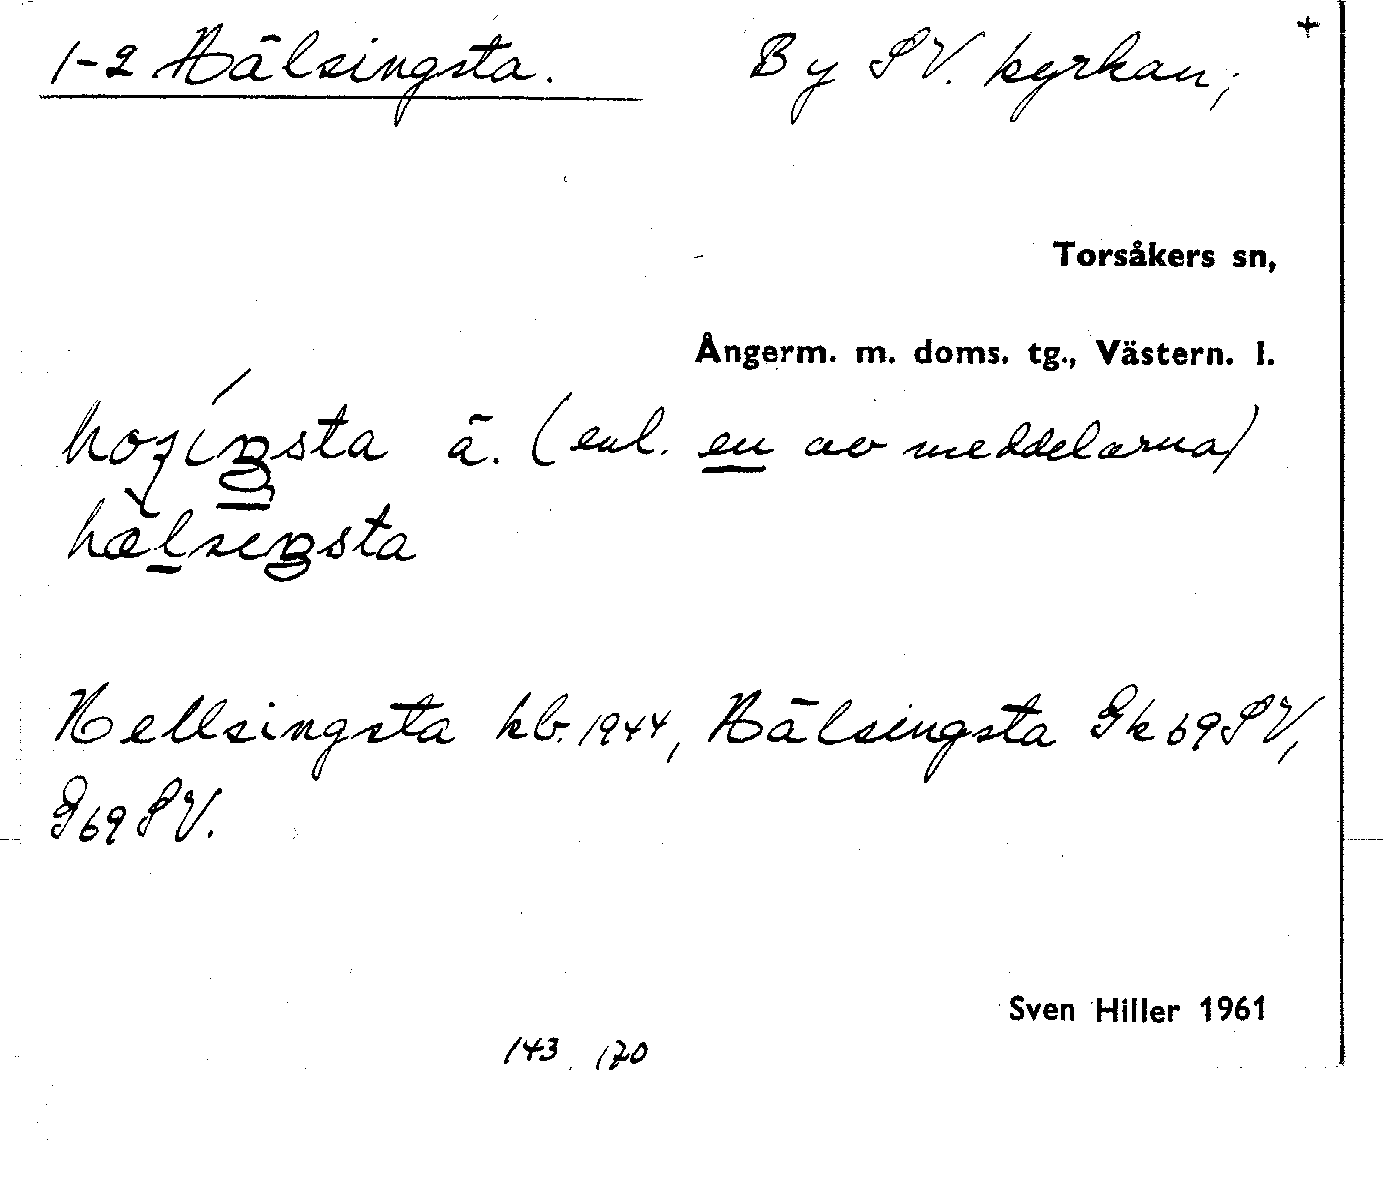 1-2 Hälsingsta. By SV. kyrkan, +
Torsåkers sn,
Ångerm. m. doms. tg., Västern. l.
ä. (enl. en av meddelarna)
hæ̀lseŋsta
Hellsingsta kb. 1944, Hälsingsta Gk 69 SV,
G 69 SV.
Sven Hiller 1961
143 170